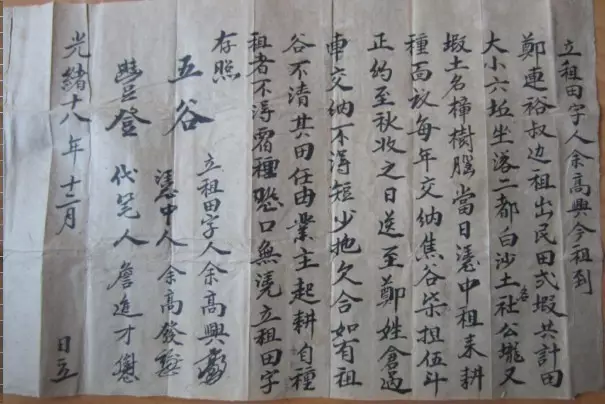 立租田字人余高興今租到
鄭連裕叔边租出民田弍塅共計田
大小六坵坐落二都白沙土名社公壠又
塅土名樟樹墈當日憑中租来耕
種面议每年交纳焦谷柒担伍斗
正約至秋收之日送至鄭姓倉過
車交纳不得短少拖欠合如有租
谷不清其田任由業主起耕自種
租者不得霸種恐口無憑立租田字
存照
五谷
豐登
立租田字人余高興
憑中人余高發
代笔人詹進才
光緒十八年十二月 日立